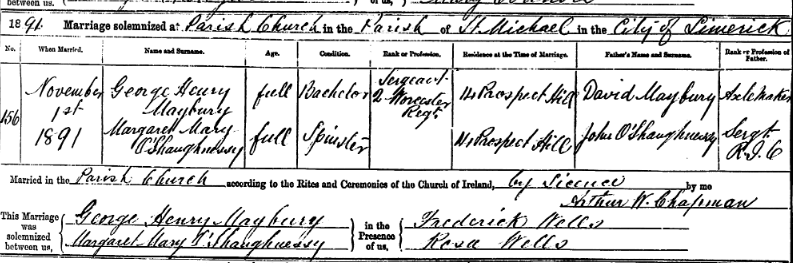 between us,
of us,
1891. Marriage solemnized at Parish Church in the Parish of St. Michael in the City of Limerick
No. When Married. Name and Surname. Age. Condition. Rank or Profession. Residence at the Time of Marriage. Father's Name and Surname. Rank or Profession of Father.
156 November 1st 1891 George Henry Maybury full Bachelor Sergeant 2 Worcester Regt 14 Prospect Hill David Maybury Axlemaker
Margaret Mary O'Shaughnessy full Spinster 14 Prospect Hill John O'Shaughnessy Sergt R.I.C
Married in the Parish Church according to the Rites and Ceremonies of the Church of Ireland, by Licence by me
Arthur W. Chapman
This Marriage was solemnized between us, George Henry Maybury in the Presence of us, Frederick Wells
Margaret Mary O'Shaughnessy Rosa Wells